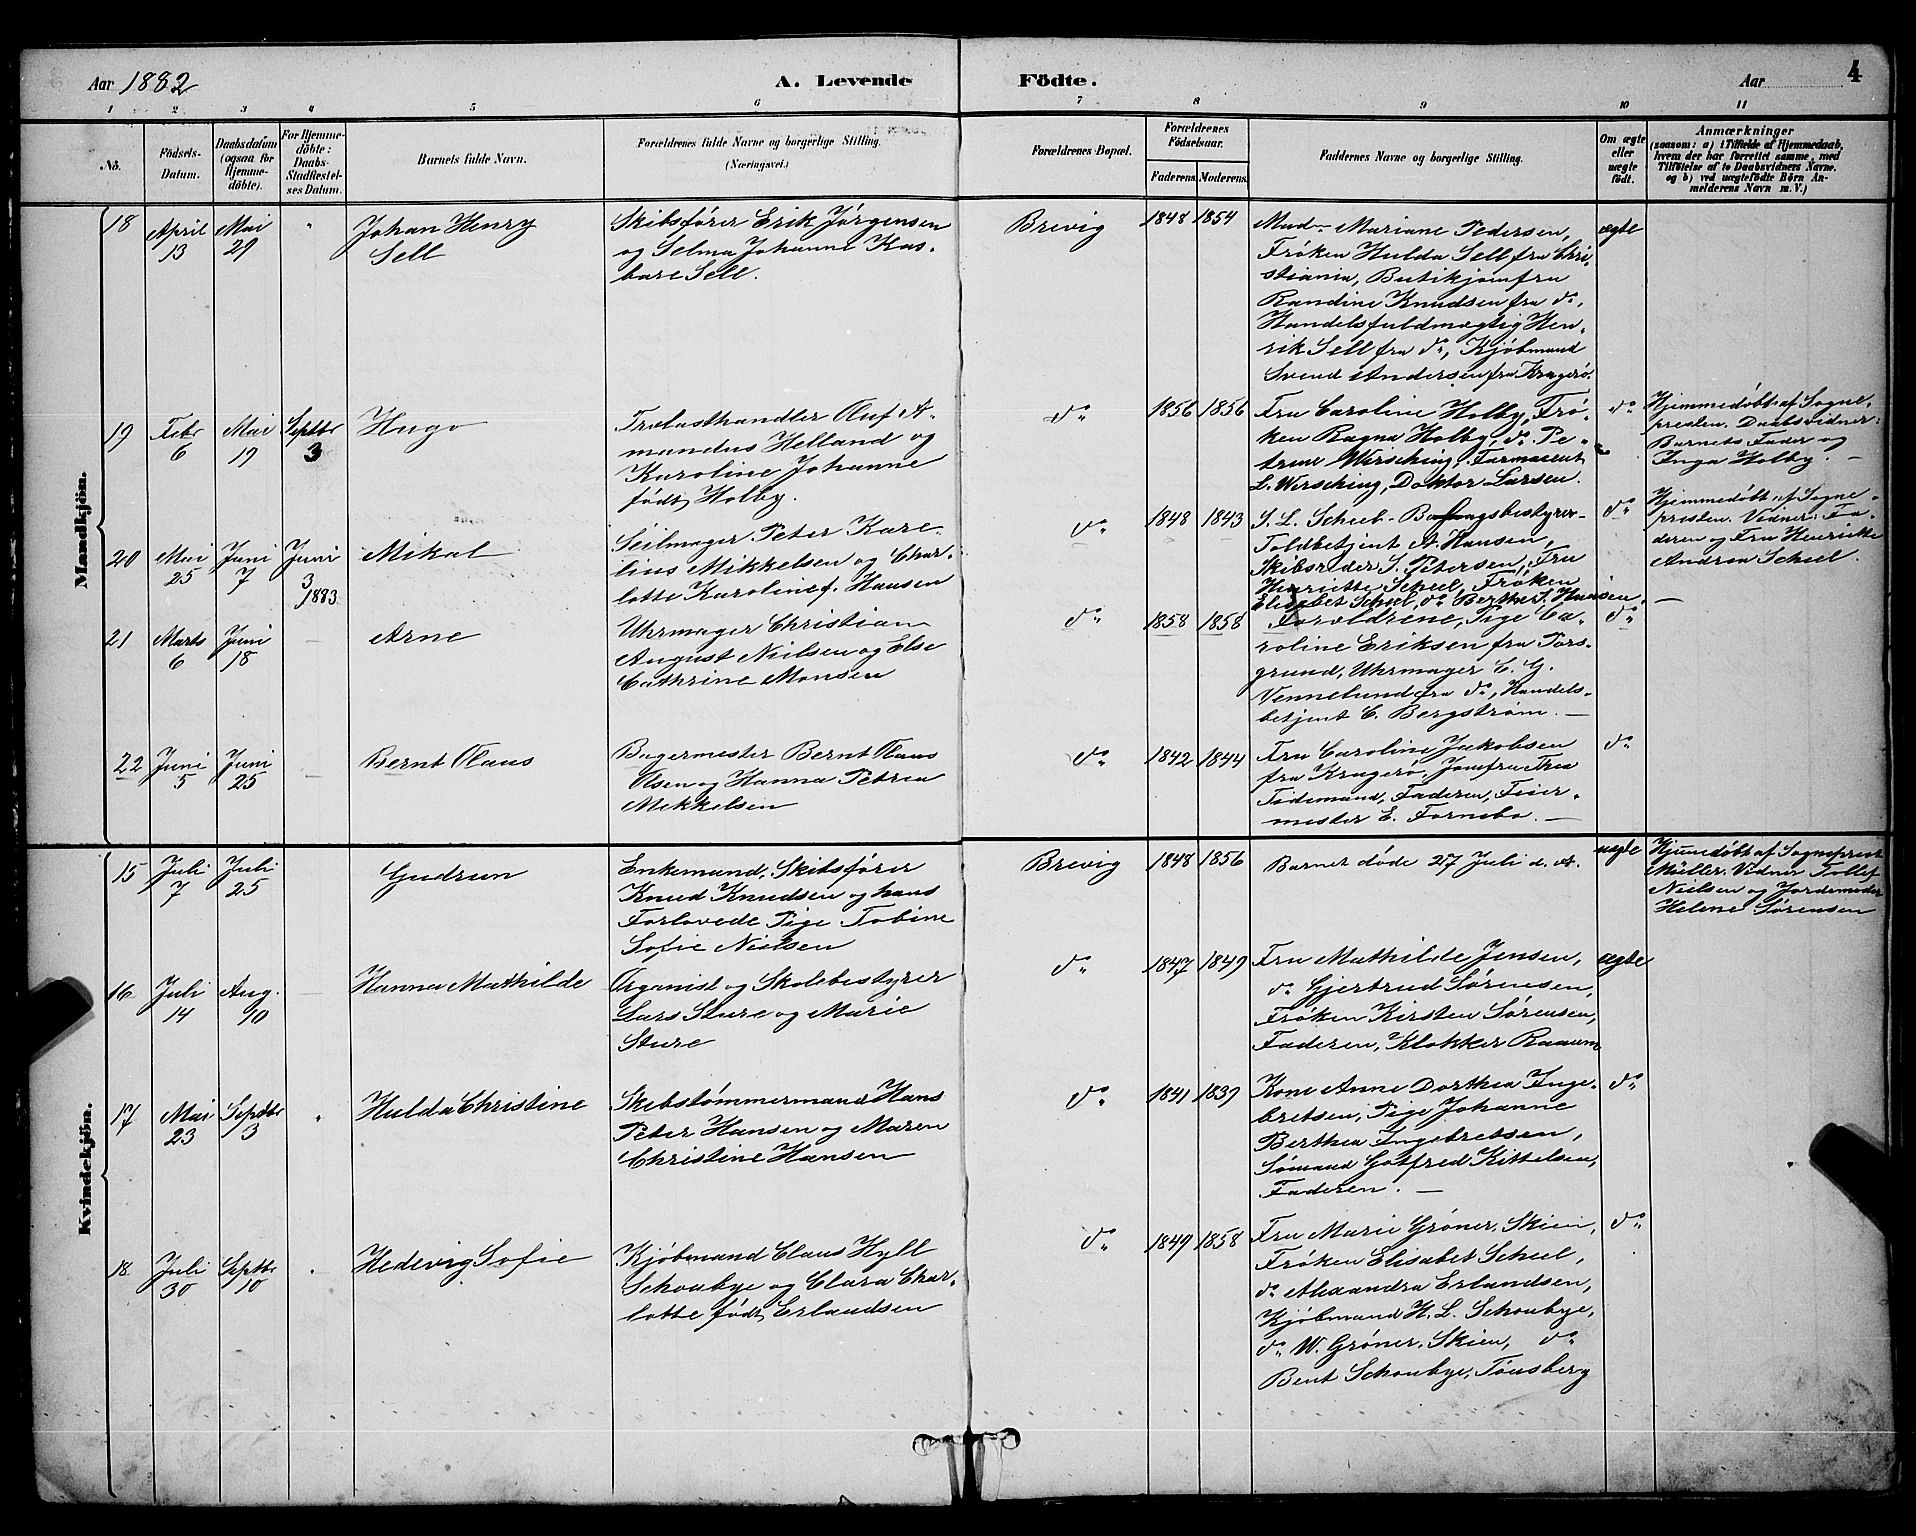 Aar 1882
A. Levende Födte.
Aar 4
1 2 3 4 5 6 7 8 9 10 11
No.
Födsels-Datum.
Daabsdatum (ogsaa for Hjemme-döbte).
For Hjemme-döbte: Daabs-Stadfæstel-ses Datum.
Barnets fulde Navn.
Forældrenes fulde Navne og borgerlige Stilling. (Næringsvei.)
Forældrenes Bopæl.
Forældrenes Födselsaar.
Faderens. Moderens.
Faddernes Navne og borgerlige Stilling.
Om ægte eller uægte födt.
Anmærkninger
(saasom: a) i Tilfælde af Hjemmedaab,
hvem der har forrettet samme, med
Tilföielse af to Daabsvidners Navne.
og b) ved uægtefödte Börn An-
melderens Navn m. V.)
Mandkjön.
18 April 13 Mai 29 "
Johan Henry
Sell
Skibsfører Erik Jørgensen
og Selma Johanne Kas-
bare Sell.
Brevig 1848 1854
Mad. Mariane Pedersen,
Frøken Hulda Sell fra Chri-
stiania, Butikjomfru
Randine Knudsen fra do,
Handelsfuldmægtig Hen-
rik Sell fra do, Kjøbmand
Svend Andersen fra Kragerø.
ægte
19 Febr 6 Mai 19 Septbr 3
Hugo
Trælasthandler Oluf A-
mandus Helland og
Karoline Johanne
født Holby.
do 1856 1856
Fru Caroline Holby, Frø-
ken Ragna Holby, do Pe-
trine Wirsching, Farmaceut
L. Wirsching, Doktor Larsen.
do
Hjemmedøbt af Sogne-
presten. Daabsvidner:
Barnets Fader og
Inga Holby. —
20 Mai 25 Juni 7 Juni 3 1883.
Mikal
Seilmager Peter Kare-
lius Mikkelsen og Char-
lotte Karoline f. Hansen
do 1848 1843
S. L. Scheel
Toldbetjent A. Hansen,
Skibsreder S. Petersen, Fru
Henriette Scheel, Frøken
Elisabet Scheel, do Berthe S. Hansen.
do
Hjemmedøbt af Sogne-
presten. Vidner: Fa-
deren og Fru Henrikke
Andrea Scheel.
21 Marts 6 Juni 18 —
Arne
Uhrmager Christian
August Nielsen og Else
Cathrine Monsen
do 1858 1858
Forældrene, Pige Ca-
roline Eriksen fra Pors-
grund, Uhrmager C. G.
Vennelund fra do, Handels-
betjent C. Bergstrøm. —
do
—
22 Juni 5 Juni 25 —
Bernt Olaus
Bagermester Bernt Olaus
Olsen og Hanna Petrea
Mikkelsen
do 1842 1844
Fru Caroline Jakobsen
fra Kragerø, Jomfru Thea
Tidemand, Faderen, Feier-
mester E. Fornebo. —
do
Kvindekjön.
15 Juli 7 Juli 25
Gudrun
Enkemand, Skibsfører
Knud Knudsen og hans
Forlovede Pige Tobine
Sofie Nielsen
Brevig 1848 1856
Barnet døde 27 Juli d. A.
uægte
Hjemmedøbt af Sogneprest
Müller. Vidner Tollef
Nielsen og Jordemoder
Helene Sørensen
16 Juli 14 Aug. 10 —
Hanna Mathilde
Organist og Skolebestyrer
Lars Sture og Marie
Sture
do 1847 1849
Fru Mathilde Jensen,
do Gjertrud Sørensen,
Frøken Kirsten Sørensen,
Faderen, Klokker Raaum
ægte
17 Mai 23 Septbr 3 "
Hulda Christine
Skibstømmermand Hans
Peter Hansen og Maren
Christine Hansen
do 1841 1839
Kone Anne Dorthea Inge-
bretsen, Pige Johanne
Berthea Ingebretsen,
Sømand Gotfred Kittelsen,
Faderen. —
do
18 Juli 30 Septbr 10 "
Hedevig Sofie
Kjøbmand Claus Hyll
Schoubye og Clara Char-
lotte født Erlandsen
do 1849 1858
Fru Marie Grøner, Skien,
Frøken Elisabet Scheel,
do Alexandra Erlandsen,
Kjøbmand H. L. Schoubye,
do W. Grøner, Skien, do
Bent Schoubye, Tønsberg
do